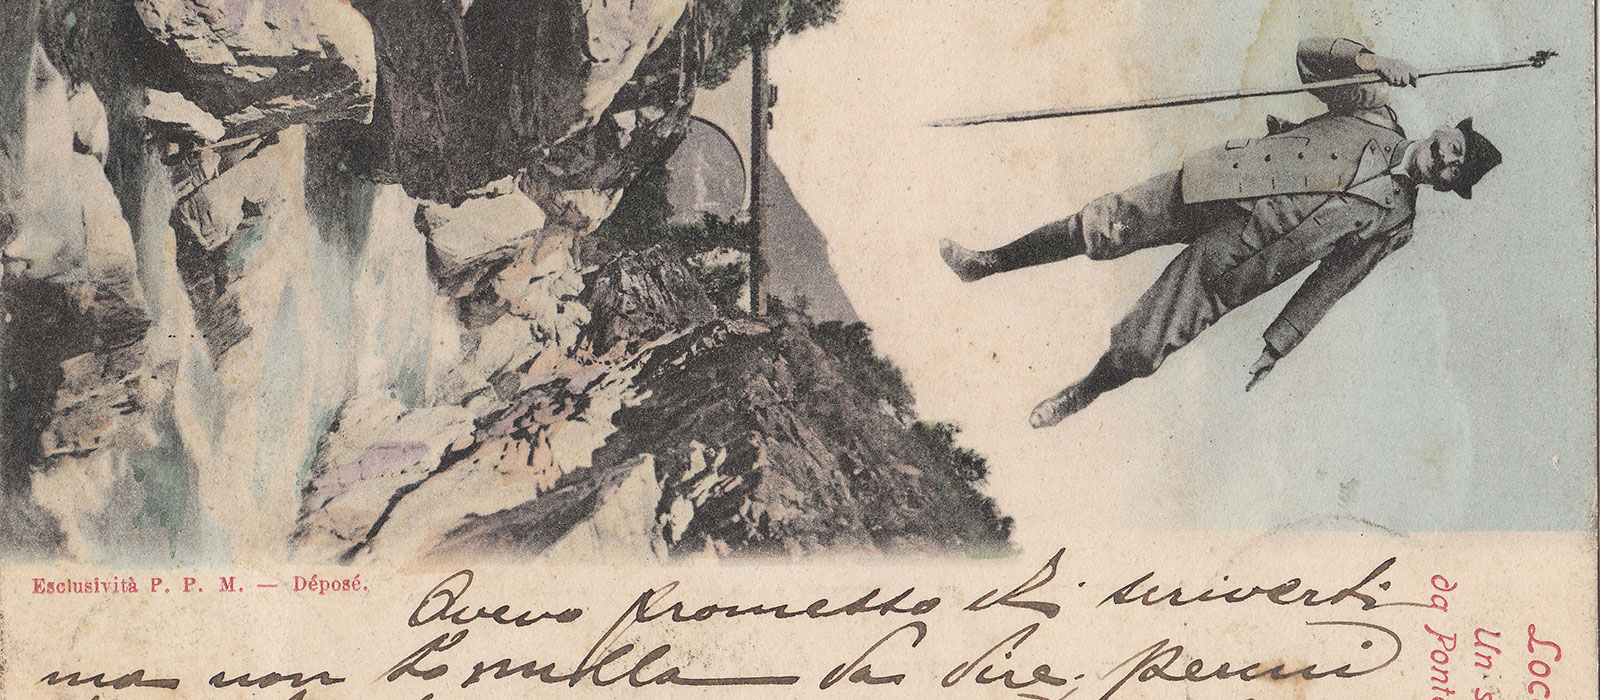 Esclusività P. P. M. — Déposé.
Avevo promesso di scriverti
ma non ho nulla da dire.
Loc
Un s
da Ponte